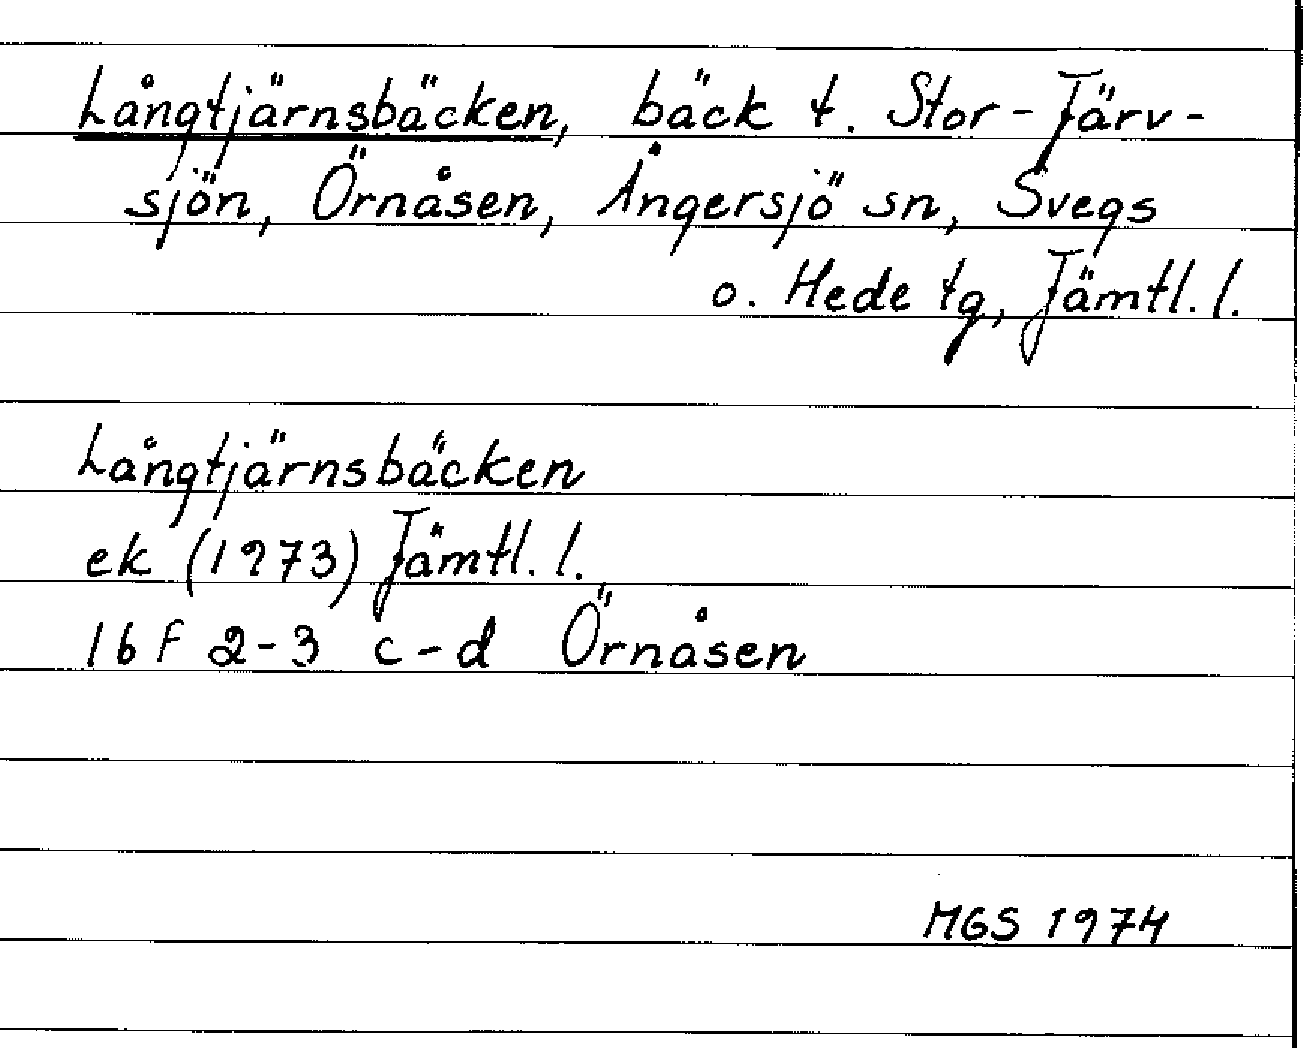 Långtjärnsbäcken, bäck t. Stor-Järv-
sjön, Örnåsen, Ängersjö sn, Svegs
o. Hede tg, Jämtl. l.
Långtjärnsbäcken
ek (1973) Jämtl. l.
16 F 2-3 c-d Örnåsen
MGS 1974